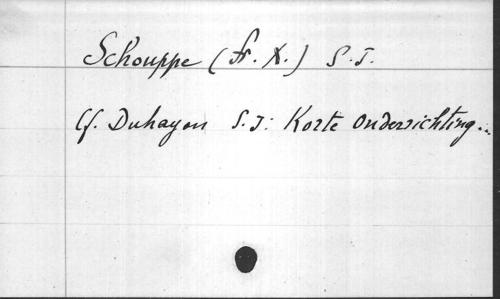 Schouppe (Fr. X.) S.J.
Cf. Duhayon S.J: Korte onderrichting...